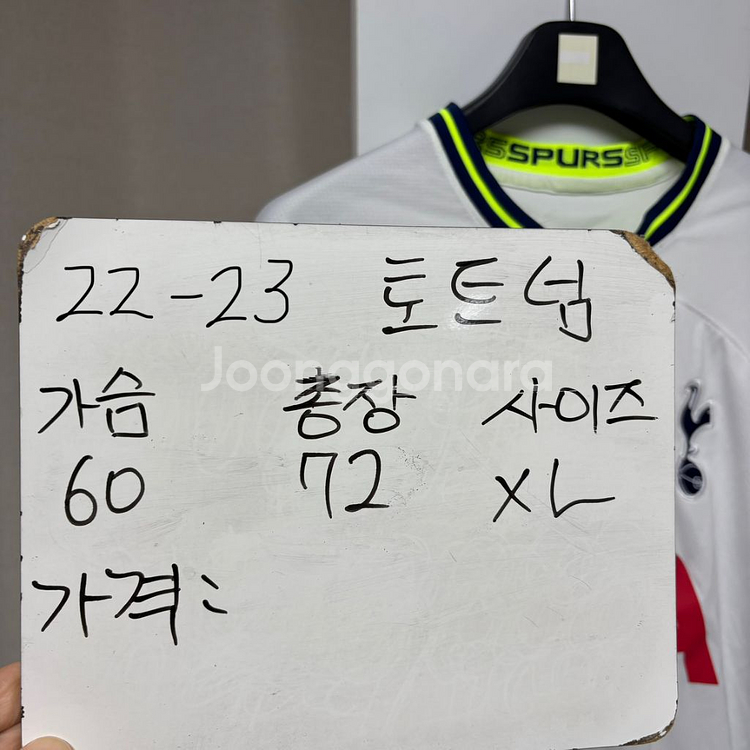 SSPURSSP
22-23 토트넘
Joonggonara
가슴 총장 사이즈
60 72 XL
가격: